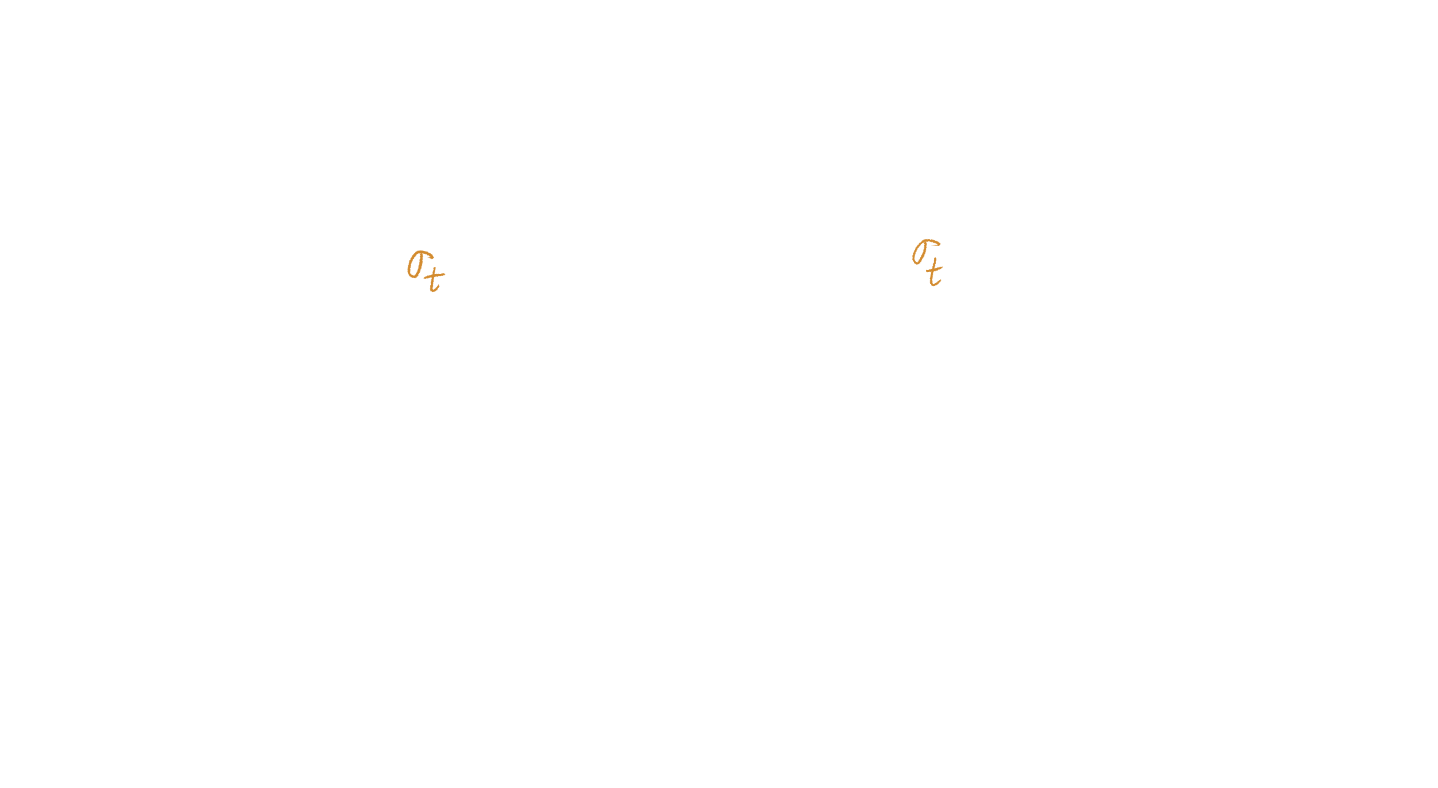 σ_t σ_t